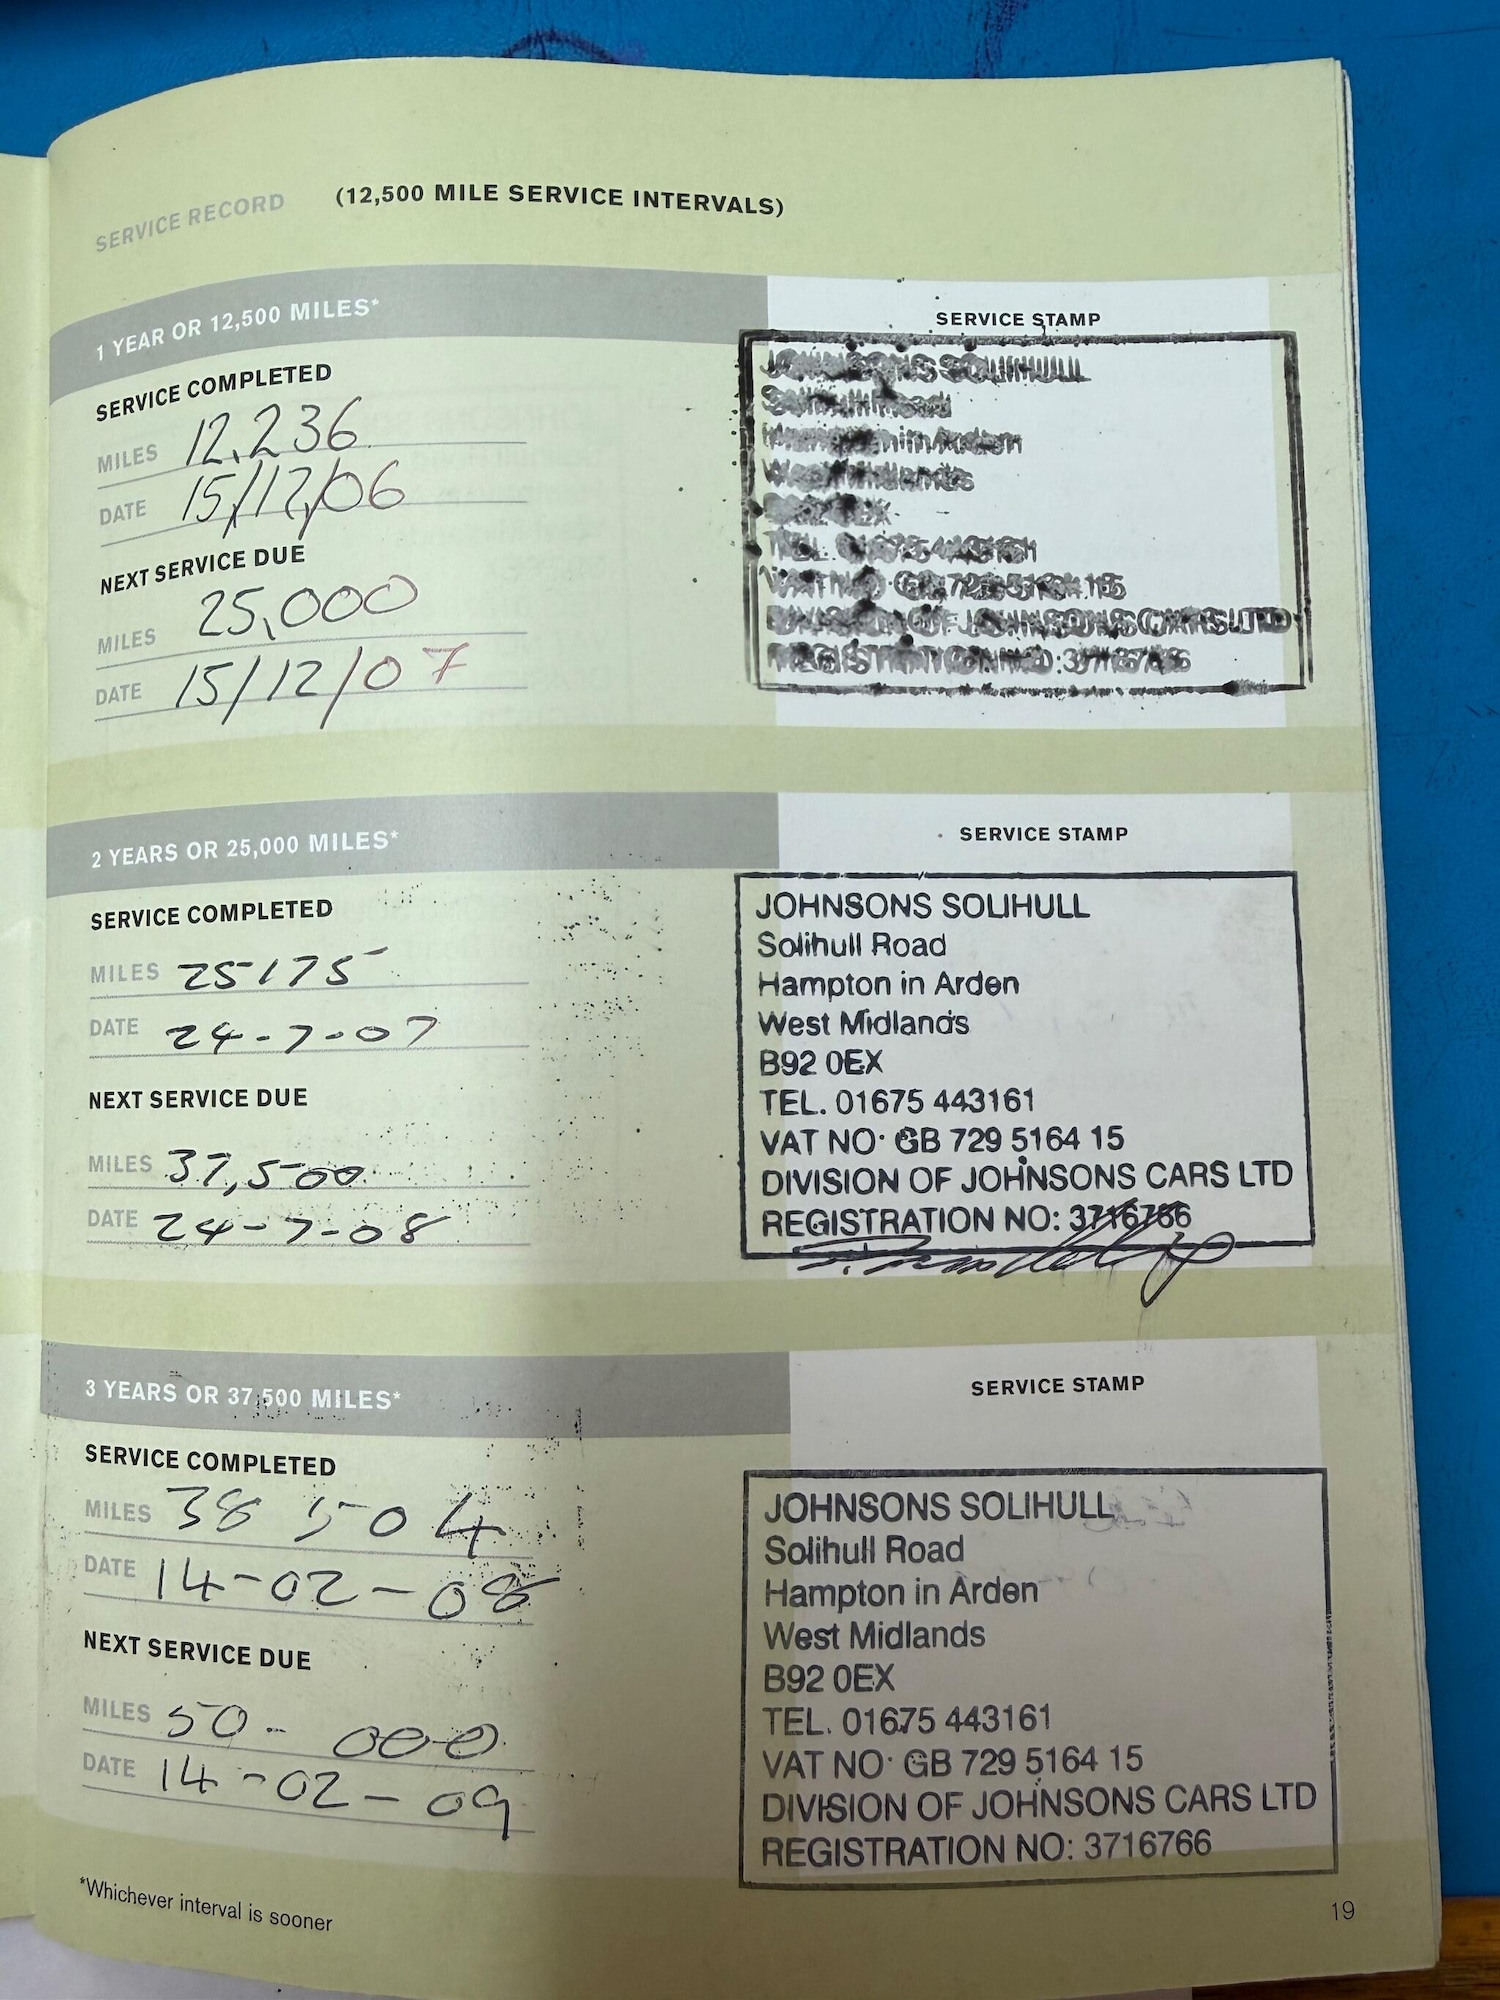 SERVICE RECORD (12,500 MILE SERVICE INTERVALS)
1 YEAR OR 12,500 MILES*
SERVICE STAMP
SERVICE COMPLETED
MILES 12,236
DATE 15/12/06
NEXT SERVICE DUE
MILES 25,000
DATE 15/12/07
JOHNSONS SOLIHULL
Solihull Road
Hampton in Arden
West Midlands
B92 0EX
TEL. 01675 443161
VAT NO· GB 729 5164 15
DIVISION OF JOHNSONS CARS LTD
REGISTRATION NO: 3716766
2 YEARS OR 25,000 MILES*
SERVICE STAMP
SERVICE COMPLETED
MILES 25175
DATE 24-7-07
NEXT SERVICE DUE
MILES 37,500
DATE 24-7-08
JOHNSONS SOLIHULL
Solihull Road
Hampton in Arden
West Midlands
B92 0EX
TEL. 01675 443161
VAT NO· GB 729 5164 15
DIVISION OF JOHNSONS CARS LTD
REGISTRATION NO: 3716766
3 YEARS OR 37,500 MILES*
SERVICE STAMP
SERVICE COMPLETED
MILES 38 504
DATE 14-02-08
NEXT SERVICE DUE
MILES 50- 000
DATE 14-02-09
JOHNSONS SOLIHULL
Solihull Road
Hampton in Arden
West Midlands
B92 0EX
TEL. 01675 443161
VAT NO· GB 729 5164 15
DIVISION OF JOHNSONS CARS LTD
REGISTRATION NO: 3716766
*Whichever interval is sooner
19